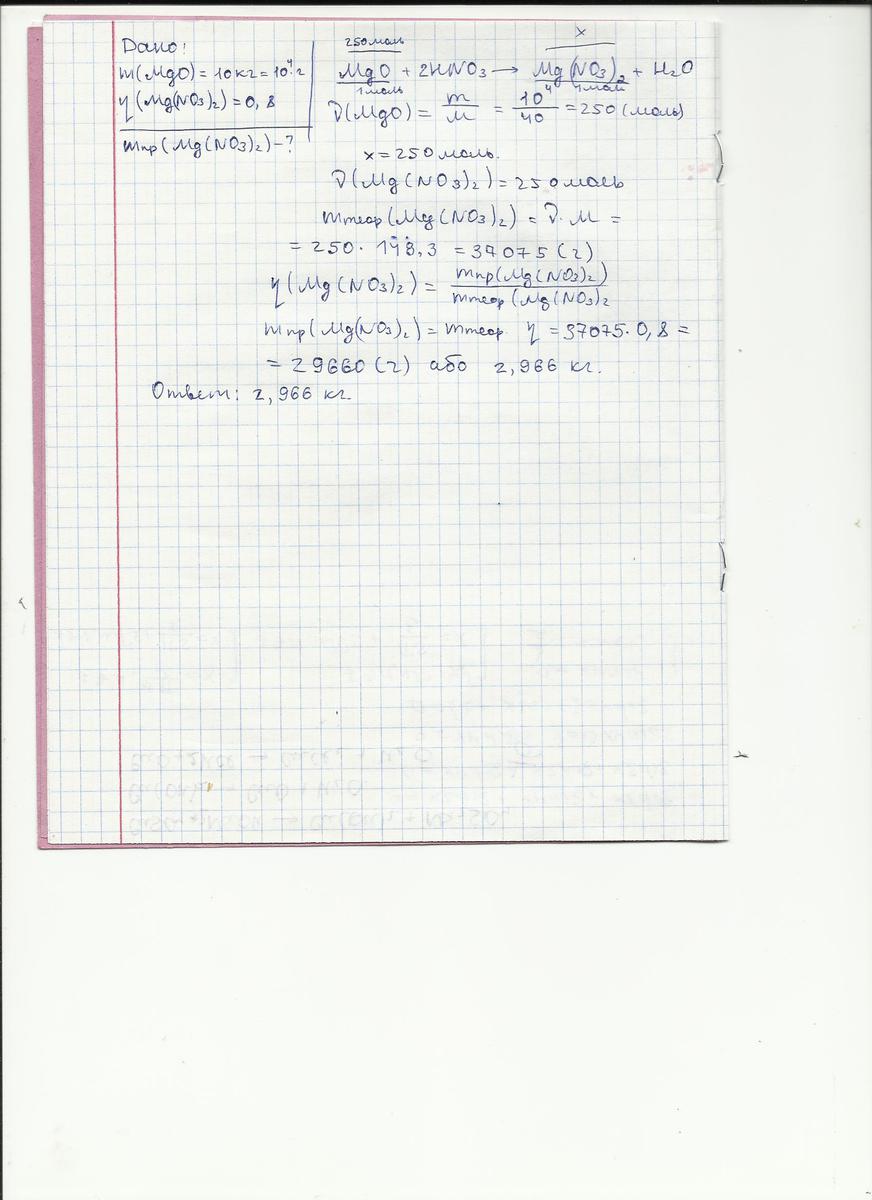 Дано:
m(MgO) = 10кг = 10⁴г
η(Mg(NO3)2) = 0,8
mпр(Mg(NO3)2) - ?
250моль
x
MgO + 2HNO3 → Mg(NO3)2 + H2O
1моль 1моль
ν(MgO) = m/M = 10⁴/40 = 250 (моль)
x = 250 моль.
ν(Mg(NO3)2) = 250моль
mтеор(Mg(NO3)2) = ν · M =
= 250 · 148,3 = 37075 (г)
η(Mg(NO3)2) = mпр(Mg(NO3)2)/mтеор(Mg(NO3)2
mпр(Mg(NO3)2) = mтеор · η = 37075 · 0,8 =
= 29660 (г) або 2,966 кг.
Ответ: 2,966 кг.